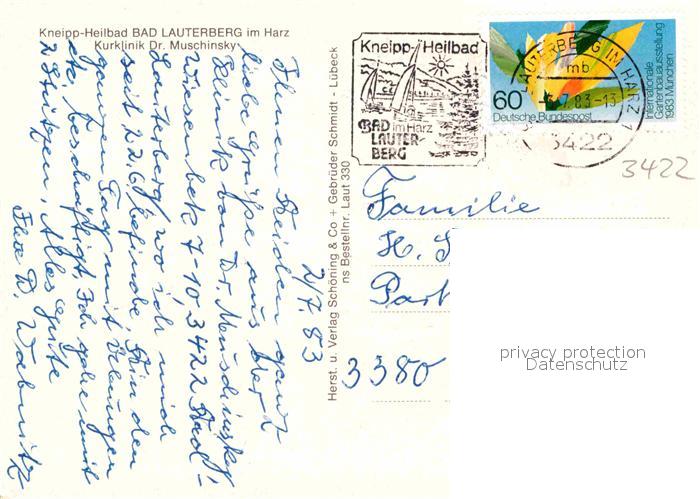 Kneipp-Heilbad BAD LAUTERBERG im Harz
Kurklinik Dr. Muschinsky
2/7. 83
Ihnen Beiden ganz
liebe Grüße aus der
Klinik von Dr. Muschinsky,
Wiesenbek 7-10, 3422 Bad-
Lauterberg, wo ich mich
seit 22.6 befinde. Bin den
ganzen Tag mit Übungen
etc. beschäftigt. Ich gehe mit
2 Stützen. Alles Gute
Ihre D.
Herst. u. Verlag Schöning & Co + Gebrüder Schmidt - Lübeck
ns Bestellnr. Laut 330
Kneipp-Heilbad
BAD im Harz
LAUTER-
BERG
LAUTERBERG IM HARZ 1
mb
7.83-13
3422
60
Deutsche Bundespost
Internationale
Gartenbauausstellung
1983 München
3422
Familie
H. S
Part
3380
privacy protection
Datenschutz